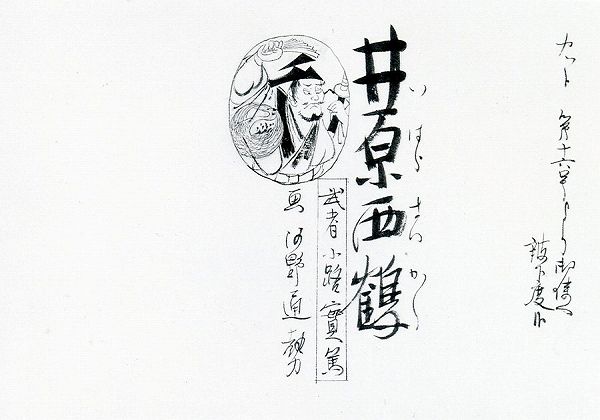 カット 第十六号より御使ひ
被下度候
いはらさいかく
井原西鶴
武者小路實篤
画 河野通勢